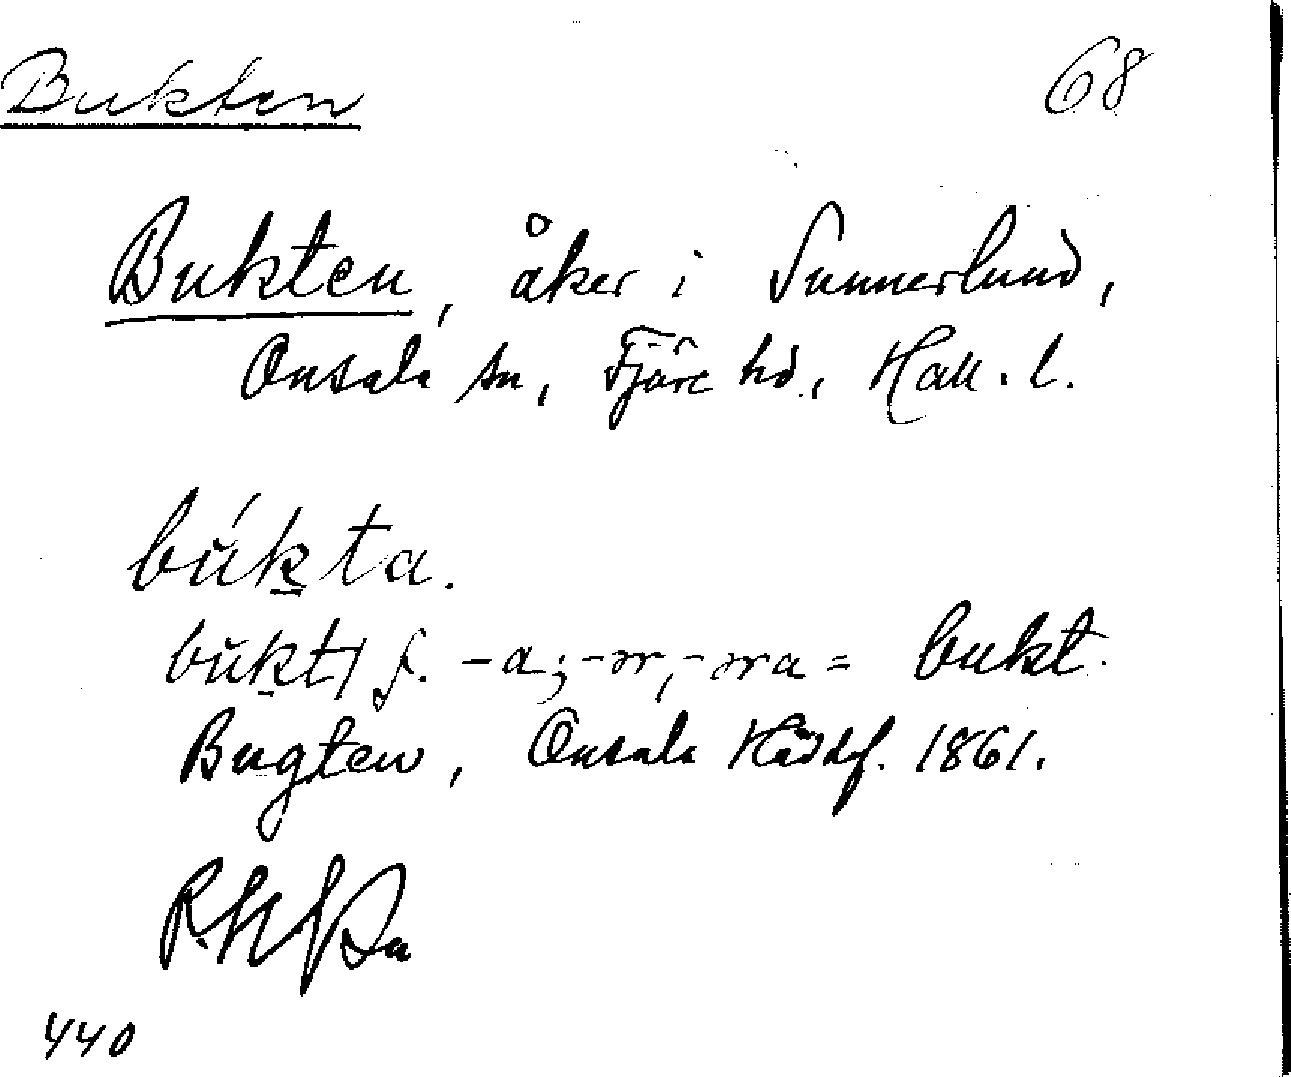 Bukten 68
Bukten, åker i Sunnerlund,
Onsala sn, Fjäre hd., Hall. l.
búkta.
bukt, f. -a; -ər, -əra = bukt.
Bugten, Onsala Hdskf. 1861.
440